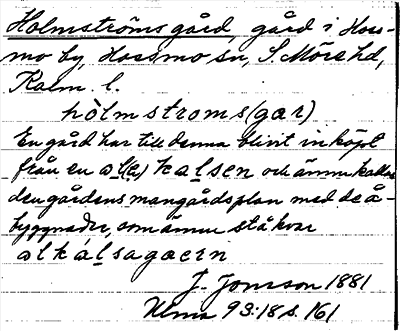 Holmströms gård, gård i Hoss-
mo by, Hossmo sn, S. Möre hd,
Kalm. l.
hòlmstroms(gær)
En gård har till denna blivit inköpt
från en al(e) kalsen och ännu kallas
den gårdens mangårdsplan med de å-
byggnader, som ännu stå kvar
alkálsagaern
J. Jonsson 1881
Ulma 93:18 s. 161